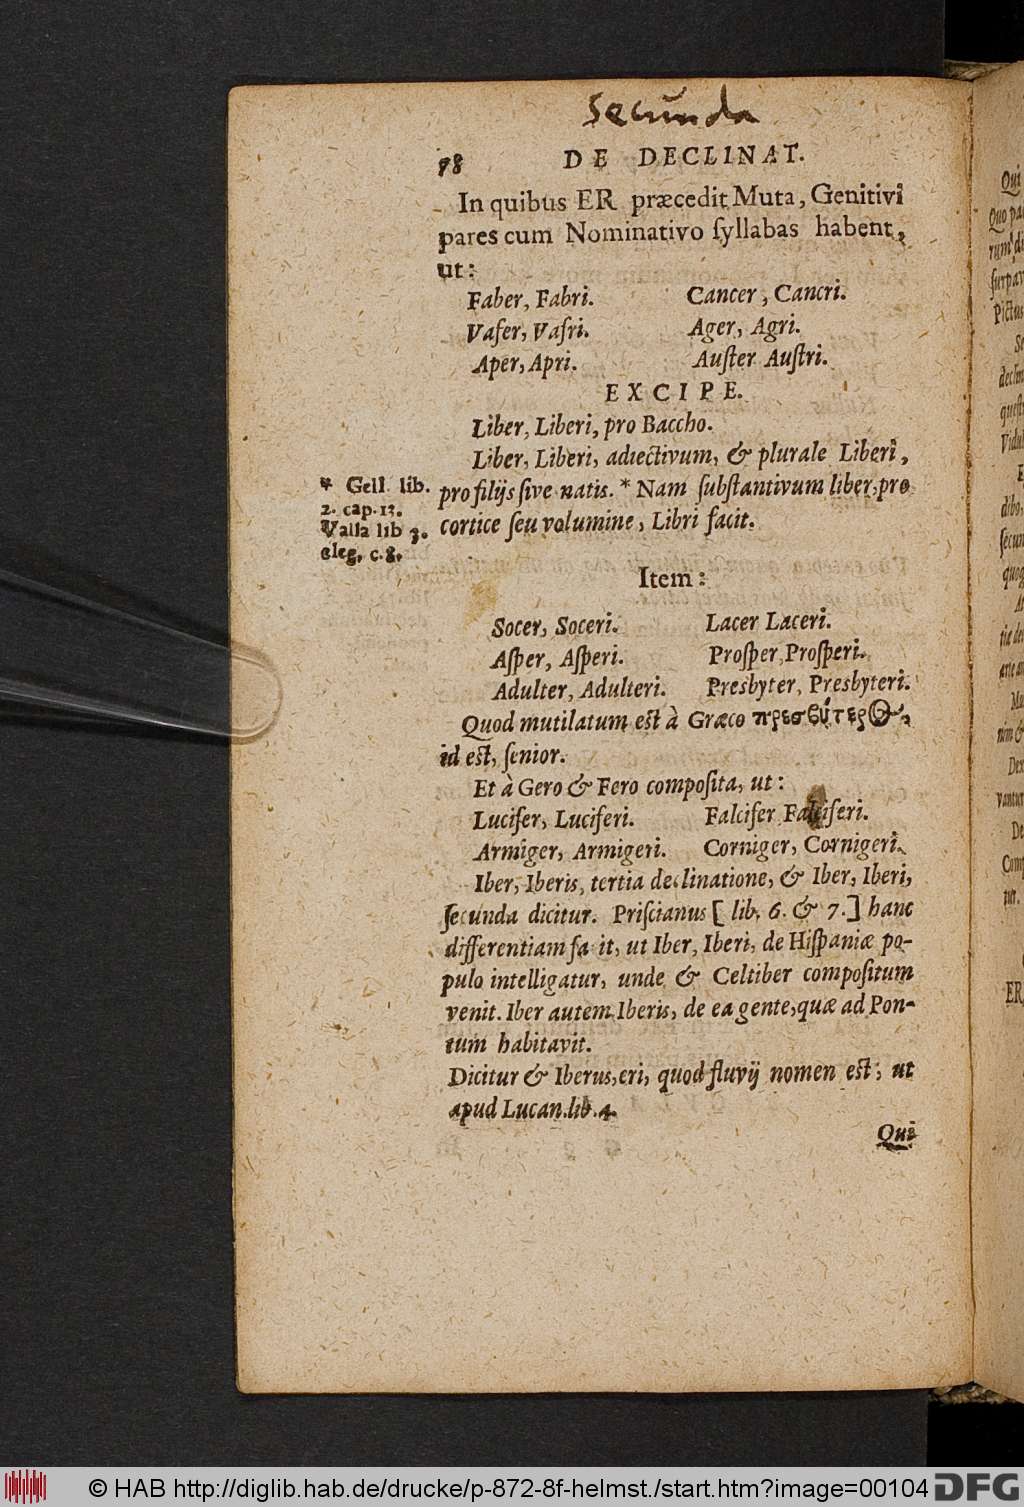 Secunda
98 DE DECLINAT.
In quibus ER præcedit Muta, Genitivi
pares cum Nominativo ſyllabas habent,
ut:
Faber, Fabri. Cancer, Cancri.
Vafer, Vafri. Ager, Agri.
Aper, Apri. Auſter Auſtri.
EXCIPE.
Liber, Liberi, pro Baccho.
Liber, Liberi, adiectivum, & plurale Liberi,
pro filijs ſive natis. * Nam ſubſtantivum liber, pro
cortice ſeu volumine, Libri facit.
* Gell. lib.
2. cap. 13.
Valla lib 3.
eleg. c. 8.
Item:
Socer, Soceri. Lacer Laceri.
Aſper, Aſperi. Proſper, Proſperi.
Adulter, Adulteri. Presbyter, Presbyteri.
Quod mutilatum eſt à Græco πρεσβύτερος,
id eſt, ſenior.
Et à Gero & Fero compoſita, ut:
Lucifer, Luciferi. Falcifer Falciferi.
Armiger, Armigeri. Corniger, Cornigeri.
Iber, Iberis, tertia declinatione, & Iber, Iberi,
ſecunda dicitur. Priſcianus [ lib. 6. & 7. ] hanc
differentiam fa it, ut Iber, Iberi, de Hiſpaniæ po-
pulo intelligatur, unde & Celtiber compoſitum
venit. Iber autem Iberis, de ea gente, quæ ad Pon-
tum habitavit.
Dicitur & Iberus, eri, quod fluvij nomen eſt, ut
apud Lucan. lib. 4.
Qui
Qui
Quo
Pictus
ER
© HAB http://diglib.hab.de/drucke/p-872-8f-helmst./start.htm?image=00104 DFG